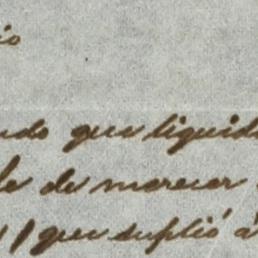 io
ndo que liquid
le de merecer
que suplió á